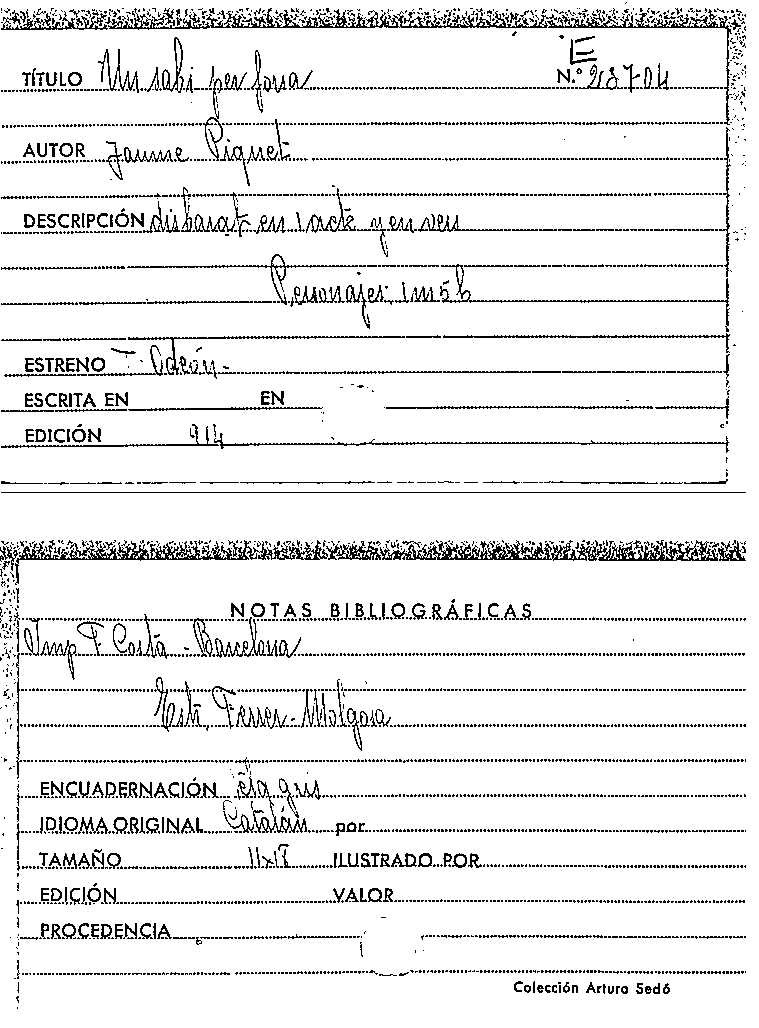 E
TÍTULO Un sabi per forsa N.º 28704
AUTOR Jaume Piquet
DESCRIPCIÓN disbarat en 1 acte y en vers
Personajes: 1 m 5 h
ESTRENO T. Odeón -
ESCRITA EN EN
EDICIÓN 914
NOTAS BIBLIOGRÁFICAS
Imp F Costa - Barcelona
Ferrer - Molgosa
ENCUADERNACIÓN gris
IDIOMA ORIGINAL Catalán por
TAMAÑO 11x17 ILUSTRADO POR
EDICIÓN VALOR
PROCEDENCIA
Colección Arturo Sedó